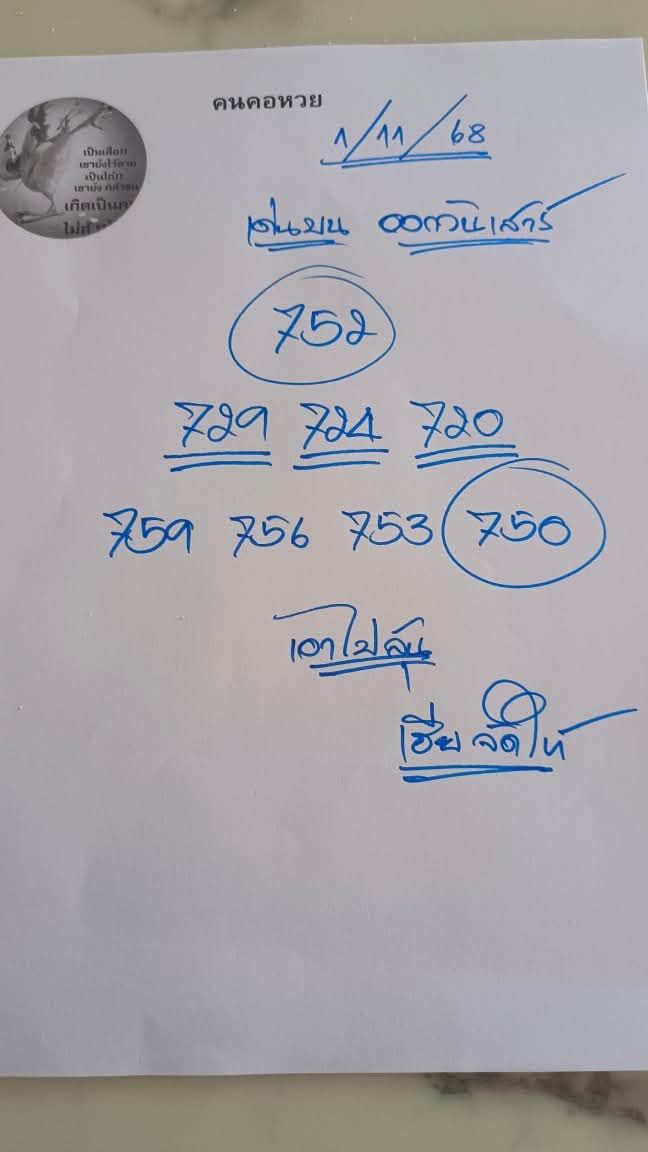 คนคอหวย
1/11/68
เป็นเสือก
เขายังไว้ลาย
เป็นไก่ก
เขายัง
เกิดเป็นค
เด่นบน ออกวันเสาร์
752
729 724 720
759 756 753 750
เอาไปลุ้น
เฮีย จัดให้